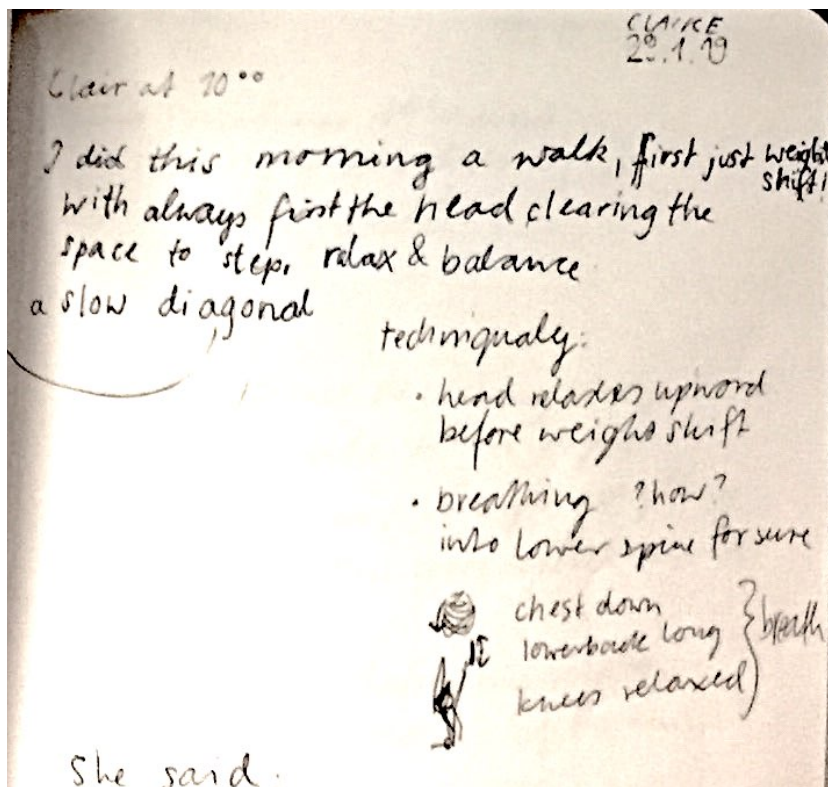 29.1.19
Clair at 10°°
I did this morning a walk, first just weight shift!
with always first the head clearing the
space to step, relax & balance
a slow diagonal
techniqualy:
• head relaxes upword
before weight shift
• breathing ?how?
into lower spine for sure
chest down
lowerback long } breath
knees relaxed
She said.